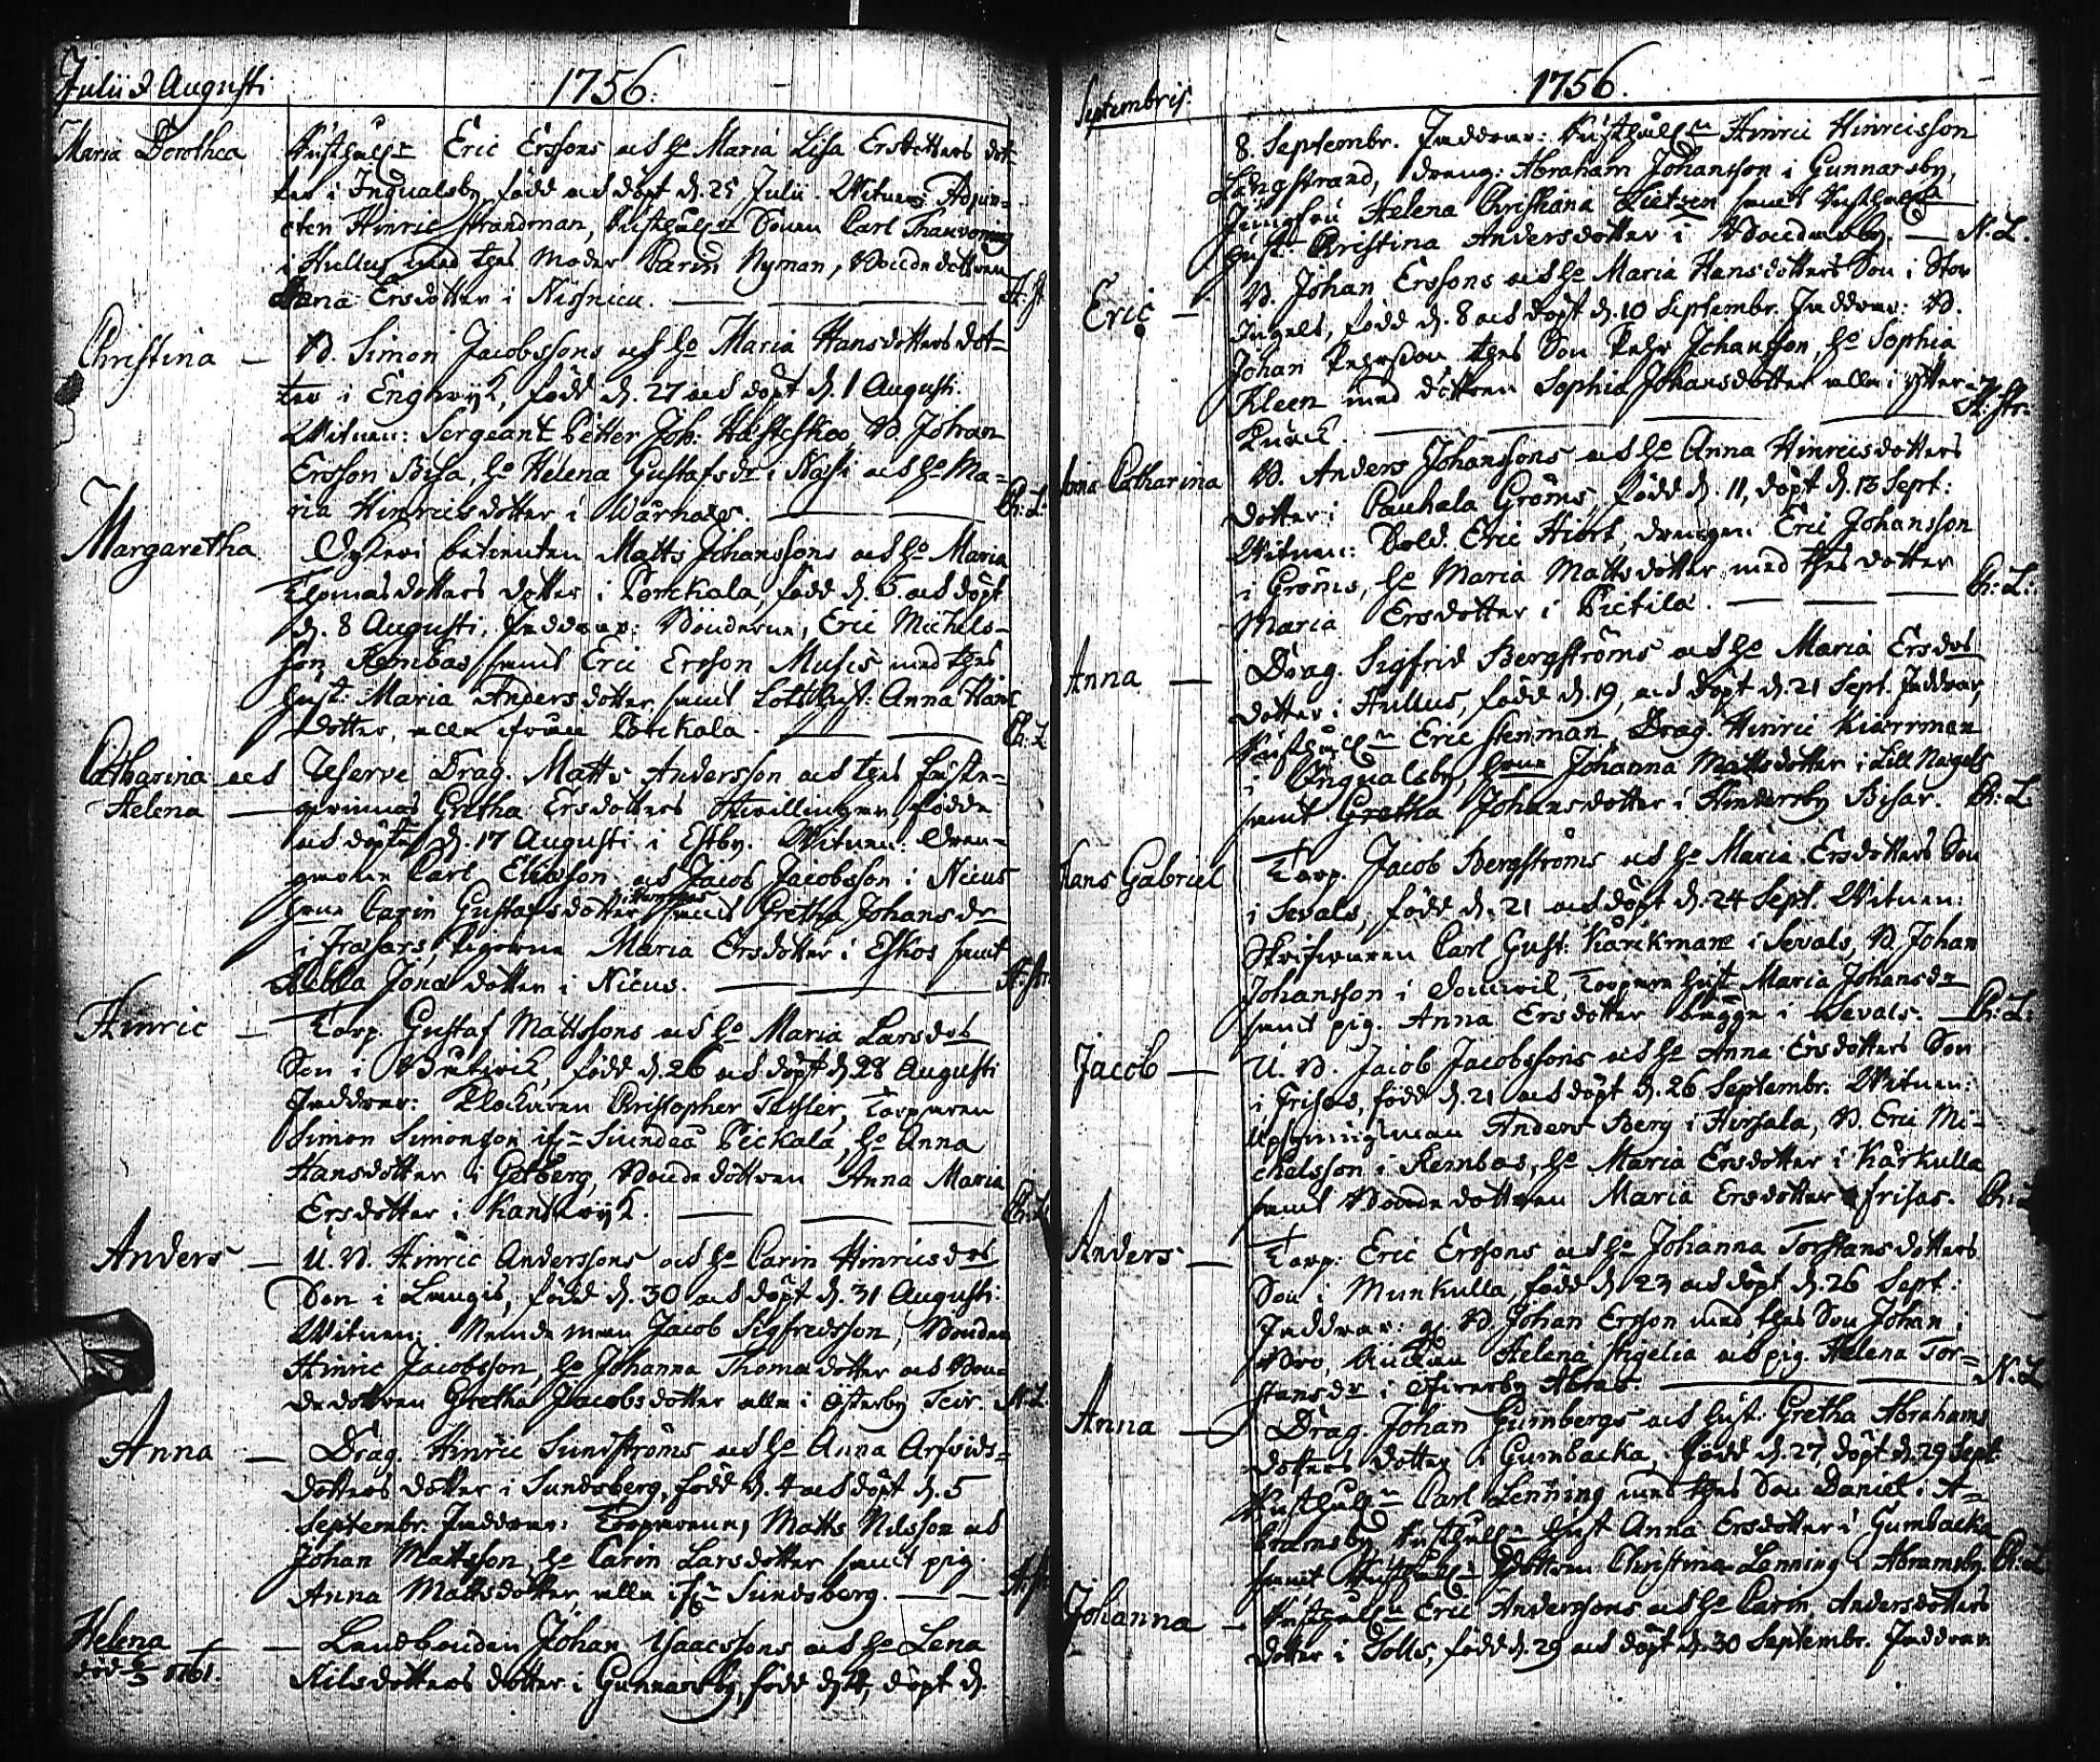 Julii & Augusti 1756.
Maria Dorothea Rusthålln Eric Erssons och Ho Maria Lisa Ersdotters dot-
ter i Ingvalsby, född och döpt d. 25 Julii. Witnen Adjun-
cten Hinric Strandman, Rusthålls Sonen Carl
i Hullus med thes Moder Carin Nyman, Bondedottren
Ersdotter i Nissnicu. H. St.
Christina B. Simon Jacobssons och Ho Maria Hansdotters dot-
ter i Engswijk, född d. 27 och döpt d. 1 Augusti.
Witnen: Sergeant Petter Joh: Hästesko, B. Johan
Ersson Bisa, Ho Helena Gustafsdr i Näsi och Ho Ma-
ria Hinricsdotter i Wärnäs. Ch: L:
Margaretha betienten Matts Johanssons och Ho Maria
Thomasdotters dotter i Porckala, född d. 5. och döpt
d. 8 Augusti. Faddrar: Bönderne, Eric Michels-
son Rembas samt Eric Ersson Musis med thes
hust: Maria Andersdotter, samt Lotshust: Anna Hans
dotter, alla ifrån Porckala. Ch: L
Catharina och Reserve Drag. Matts Andersson och thes
Helena Gretha Ersdotters Twillingar, födde
och döpte d. 17 Augusti i Estby. Witnen: Dren-
garne Carl Eliasson och Jacob Jacobsson i Nicus
Carin Gustafsdotter samt Gretha Johansdr
i Frösars, Pigorna Maria Ersdotter i Estkos samt
Jona dotter i Nicus. H. Str
Hinric Torp. Gustaf Mattssons och Ho Maria Larsdrs
Son i född d. 26 och döpt d. 28 Augusti
Faddrar: Klockaren Christopher Tesler, Torparen
Simon Simonsson ifn Siundeå Pickala, Ho Anna
Hansdotter i Getberg, Bondedottren Anna Maria
Ersdotter i Kantwijk. Ch: L
Anders U. B. Hinric Anderssons och Ho Carin Hinricsdrs
Son i Laugis, född d. 30 och döpt d. 31 Augusti:
Witnen: Nemdeman Jacob Sigfredsson, Bonden
Hinric Jacobsson, Ho Johanna Thomadotter och Bon-
dedottren Gretha Jacobsdotter alla i Österby N. L.
Anna Drag. Hinric Sundströms och Ho Anna Arfvids-
dotters dotter i Sundsberg, född d. 4 och döpt d. 5
Septembr. Faddrar: Torparena, Matts Nilsson och
Johan Mattsson, Ho Carin Larsdotter samt pig.
Anna Mattsdotter, alla ifn Sundsberg. H. St
Helena Landbonden Johan Isaacssons och Ho Lena
död 1761. Nilsdotters dotter i Gunnarsby, född d. döpt d.
Septembris: 1756.
8. Septembr. Faddrar: Rusthålln Hinric Hinricsson
Långstrand, dreng: Abraham Johansson i Gunnarsby,
Jungfru Helena Christiana Lietzen samt Rusthålls
hust: Christina Andersdotter i N. L.
Eric B. Johan Erssons och Ho Maria Hansdotters Son i Stor
Ingels, född d. 8 och döpt d. 10 Septembr. Faddrar: B.
Johan Pehrsson thes Son Pehr Johansson, Ho Sophia
Kleen med dottren Sophia Johansdotter alla i Ytter
H: Str:
Catharina B. Anders Johanssons och Ho Anna Hinricsdotters
dotter i Gröms, född d. 11, döpt d. 13 Sept:
Witnen: Sold. Eric Hiort, drengen Eric Johansson
i Gröms, Ho Maria Mattsdotter med thes dotter
Maria Ersdotter i Ch: L:
Anna Drag. Sigfrid Bergströms och Ho Maria Ersdrs
dotter i Hullus, född d. 19, och döpt d. 21 Sept. Faddrar,
Rusthålln Eric Stenman, Drag. Hinric Kiärrman
i Ingvalsby, Johanna Mattsdotter i Lill Nagels
samt Gretha Johansdotter i Hindersby Bisar. Ch: L.
Hans Gabriel Torp. Jacob Bergströms och Ho Maria Ersdotters Son
i Sevals, född d. 21 och döpt d. 24 Sept. Witnen:
Skrifwaren Carl Gust: Kärckman i Sevals, B. Johan
Johansson i Torparn hust Maria Johansdr
samt pig. Anna Ersdotter bägge i Sevals. Ch: L:
Jacob U. B. Jacob Jacobssons och Ho Anna Ersdotters Son
i Frisas, född d. 21 och döpt d. 26 Septembr. Witnen:
Upsyningsman Anders Berg i Hirsala, B. Eric Mi-
chelsson i Rembas, Ho Maria Ersdotter i Kårkulla
samt Bondedottren Maria Ersdotter frisas. Ch:
Anders Torp: Eric Erssons och Ho Johanna Torstansdotters
Son i Munkulla, född d. 23 och döpt d. 26 Sept:
Faddrar: B. Johan Ersson med thes Son Johan i
Helena Stigelia och pig. Helena Tor-
stansdr i Öfwerby N. L
Anna Drag. Johan Gumbergs och hust: Gretha Abrahams
dotters dotter i Gumbacka, född d. 27, döpt d. 29 Sept.
Rusthålln Carl Lenning med thes Son Daniel. A-
bramsby, hust Anna Ersdotter i Gumbacka
samt Rusthålls dottren Christina Lenning Abramsby. Ch: L
Johanna Rusthålln Eric Anderssons och Ho Carin Andersdotters
dotter i Tolls, född d. 29 och döpt d. 30 Septembr. Faddrar